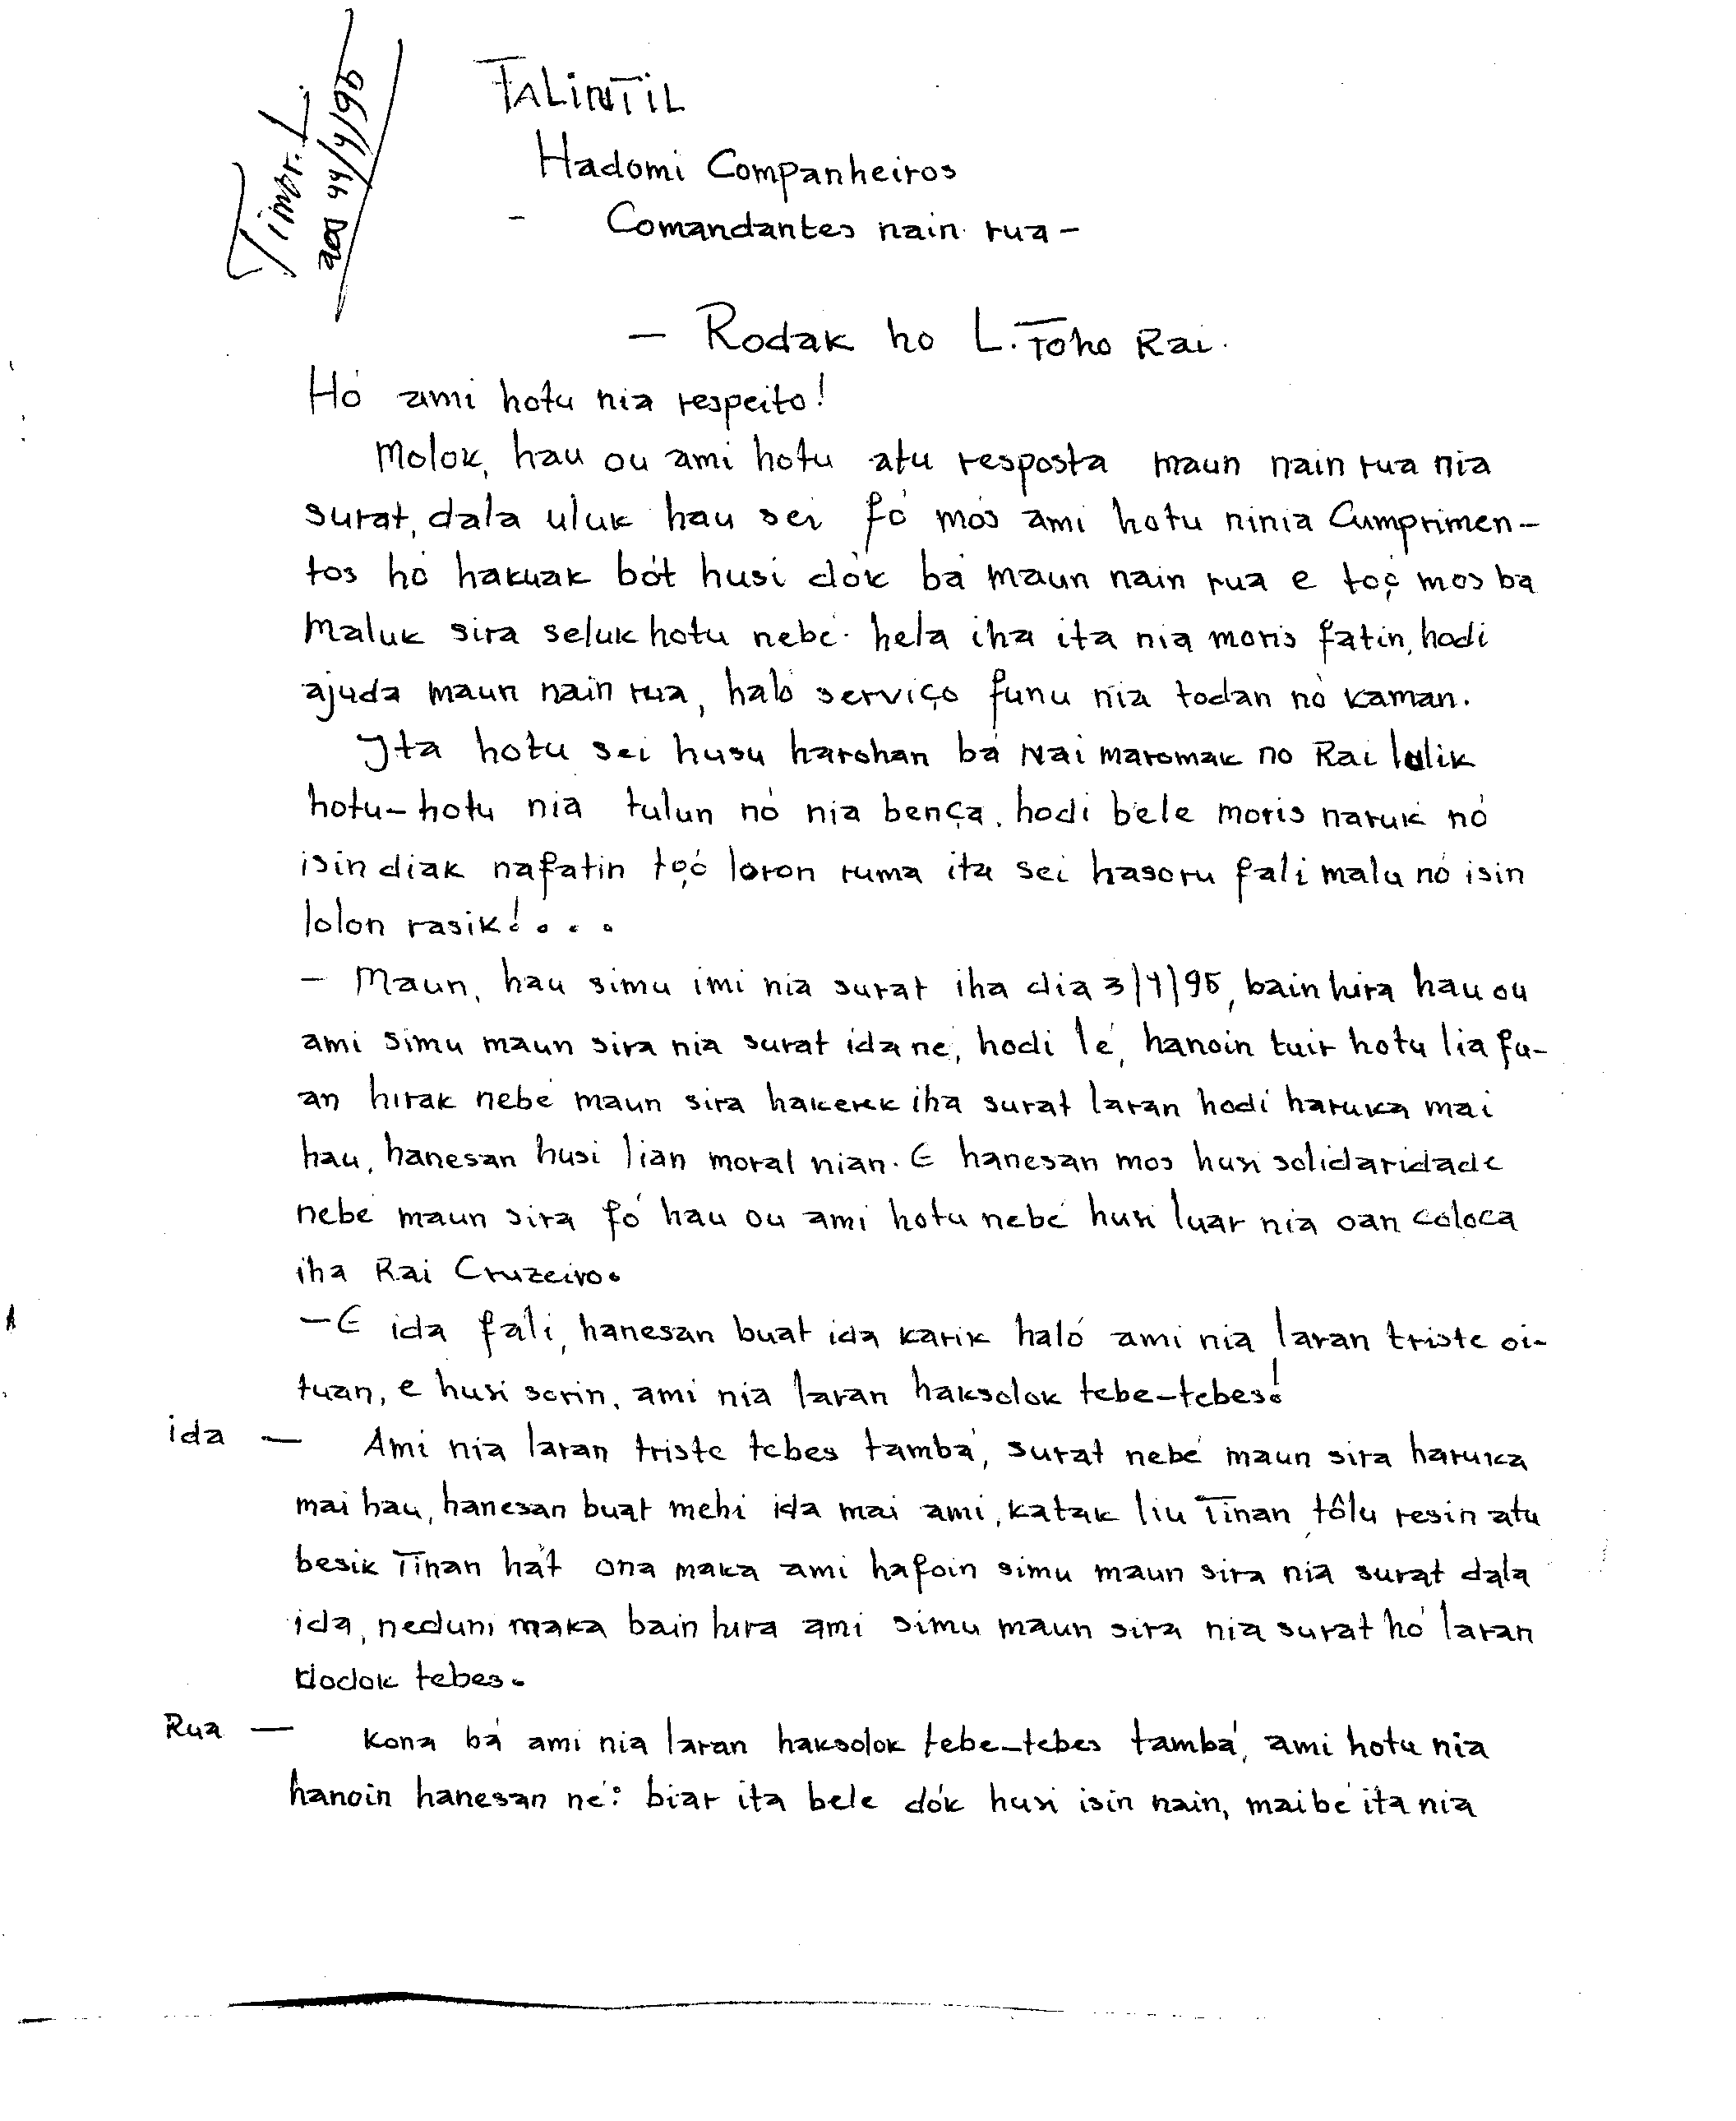 Timor. L.
aos 44/4/95
FALINTIL
Hadomi Companheiros
- Comandantes nain rua -
- Rodak ho L. Toho Rai.
Hó ami hotu nia respeito!
Molok, hau ou ami hotu atu resposta maun nain rua nia
surat, dala uluk hau sei fó mós ami hotu ninia Cumprimen-
tos hó hakuak bót husi dók bá maun nain rua e toç mos ba
maluk sira seluk hotu nebé hela iha ita nia moris fatin, hodi
ajuda maun nain rua, haló serviço funu nia todan nó kaman.
Yta hotu sei husu harohan bá Nai maromak no Rai lulik
hotu-hotu nia tulun nó nia bença, hodi bele moris naruk nó
isin diak nafatin toçó loron ruma ita sei hasoru fali malu nó isin
lolon rasik! . . .
- Maun, hau simu imi nia surat iha dia 3/4/95, bainhira hau ou
ami simu maun sira nia surat ida né, hodi lé, hanoin tuir hotu lia fu-
an hirak nebé maun sira hakerek iha surat laran hodi haruka mai
hau, hanesan husi lian moral nian. E hanesan mos husi solidaridade
nebé maun sira fó hau ou ami hotu nebé husi luar nia oan coloca
iha Rai Cruzeiro.
- E ida fali, hanesan buat ida karik haló ami nia laran triste oi-
tuan, e husi sorin, ami nia laran haksolok tebe-tebes!
ida - Ami nia laran triste tebes tambá, surat nebé maun sira haruka
mai hau, hanesan buat mehi ida mai ami, katak liu Tinan tôlu resin atu
besik Tinan hát ona maka ami hafoin simu maun sira nia surat dala
ida, neduni maka bainhira ami simu maun sira nia surat hó laran
dodok tebes.
Rua - Kona bá ami nia laran haksolok tebe-tebes tambá, ami hotu nia
hanoin hanesan né: biar ita bele dók husi isin nain, maibé ita nia